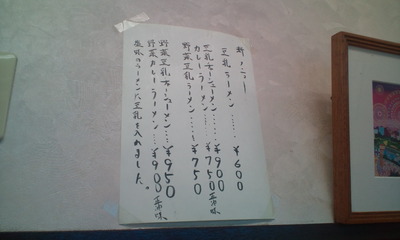 新メニュー
豆乳ラーメン……¥600
豆乳チャーシューメン……¥900
カレーラーメン……¥750
野菜豆乳ラーメン…¥750
野菜豆乳チャーシューメン…¥950
野菜カレーラーメン…¥900
塩味のラーメンに豆乳を入れました。